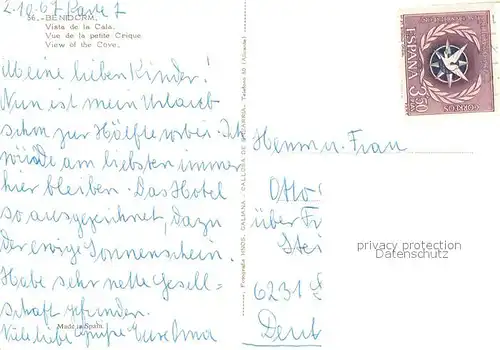 2.10.67 Karte 7
56.-BENIDORM.
Vista de la Cala.
Vue de la petite Crique
View of the Cove.
Meine lieben Kinder!
Nun ist mein Urlaub
schon zur Hälfte vorbei. Ich
würde am liebsten immer
hier bleiben. Das Hotel
so ausgezeichnet, dazu
der ewige Sonnenschein.
Habe sehr nette Gesell=
schaft gefunden.
Viele liebe Grüße Eure Oma
Made in Spain.
CALLOSA DE
ESPAÑA
3,50
CORREOS
Herrn u. Frau
Otto
über
privacy protection
Datenschutz
6231
Deut